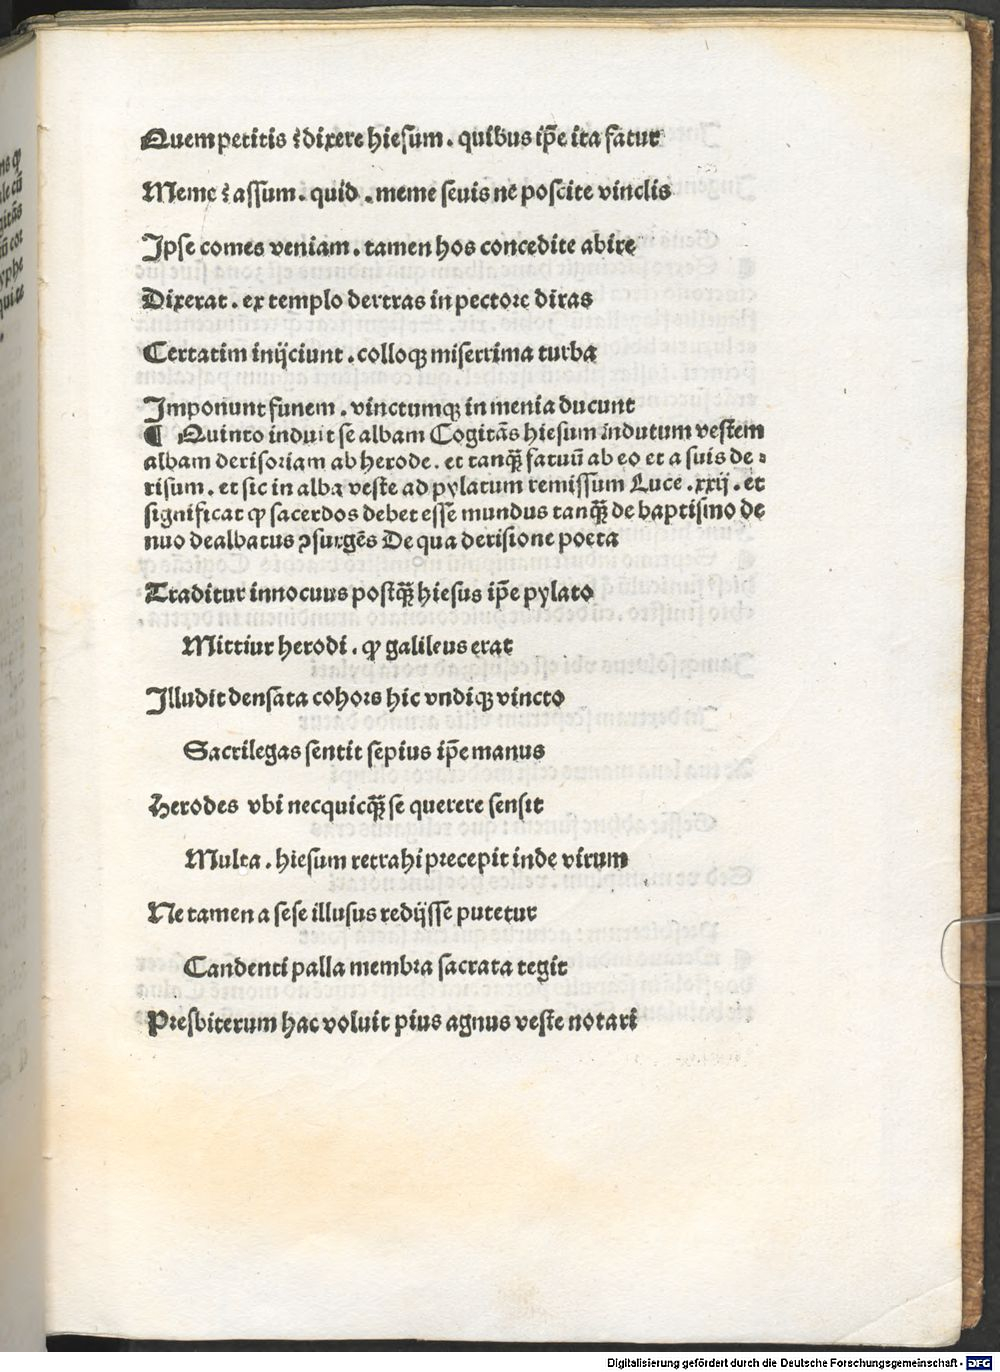 Quem petitis ⁊ dixere hiesum . quibus ip̄e ita fatur
Meme ⁊ assum . quid . meme seuis ne poscite vinclis
Ipse comes veniam . tamen hos concedite abire
Dixerat . ex templo dextras in pectore diras
Certatim inijciunt . colloqꝫ miserrima turba
Imponunt funem . vinctumqꝫ in menia ducunt
¶ Quinto induit se albam Cogitãs hiesum indutum vestem
albam derisoriam ab herode . et tanqꝫ̃ fatuũ ab eo et a suis de⸗
risum . et sic in alba veste ad pylatum remissum Luce .xxij . et
significat ꝙ sacerdos debet esse mundus tanqꝫ̃ de baptismo de
nuo dealbatus ꝯsurgẽs De qua derisione poeta
Traditur innocuus postqꝫ̃ hiesus ip̄e pylato
Mittiur herodi . ꝙ galileus erat
Illudit densata cohors hic vndiqꝫ vincto
Sacrilegas sentit sepius ip̄e manus
Herodes vbi necquicqꝫ̃ se querere sensit
Multa . hiesum retrahi precepit inde virum
Ne tamen a sese illusus redijsse putetur
Candenti palla membra sacrata tegit
Presbiterum hac voluit pius agnus veste notari
Digitalisierung gefördert durch die Deutsche Forschungsgemeinschaft - DFG